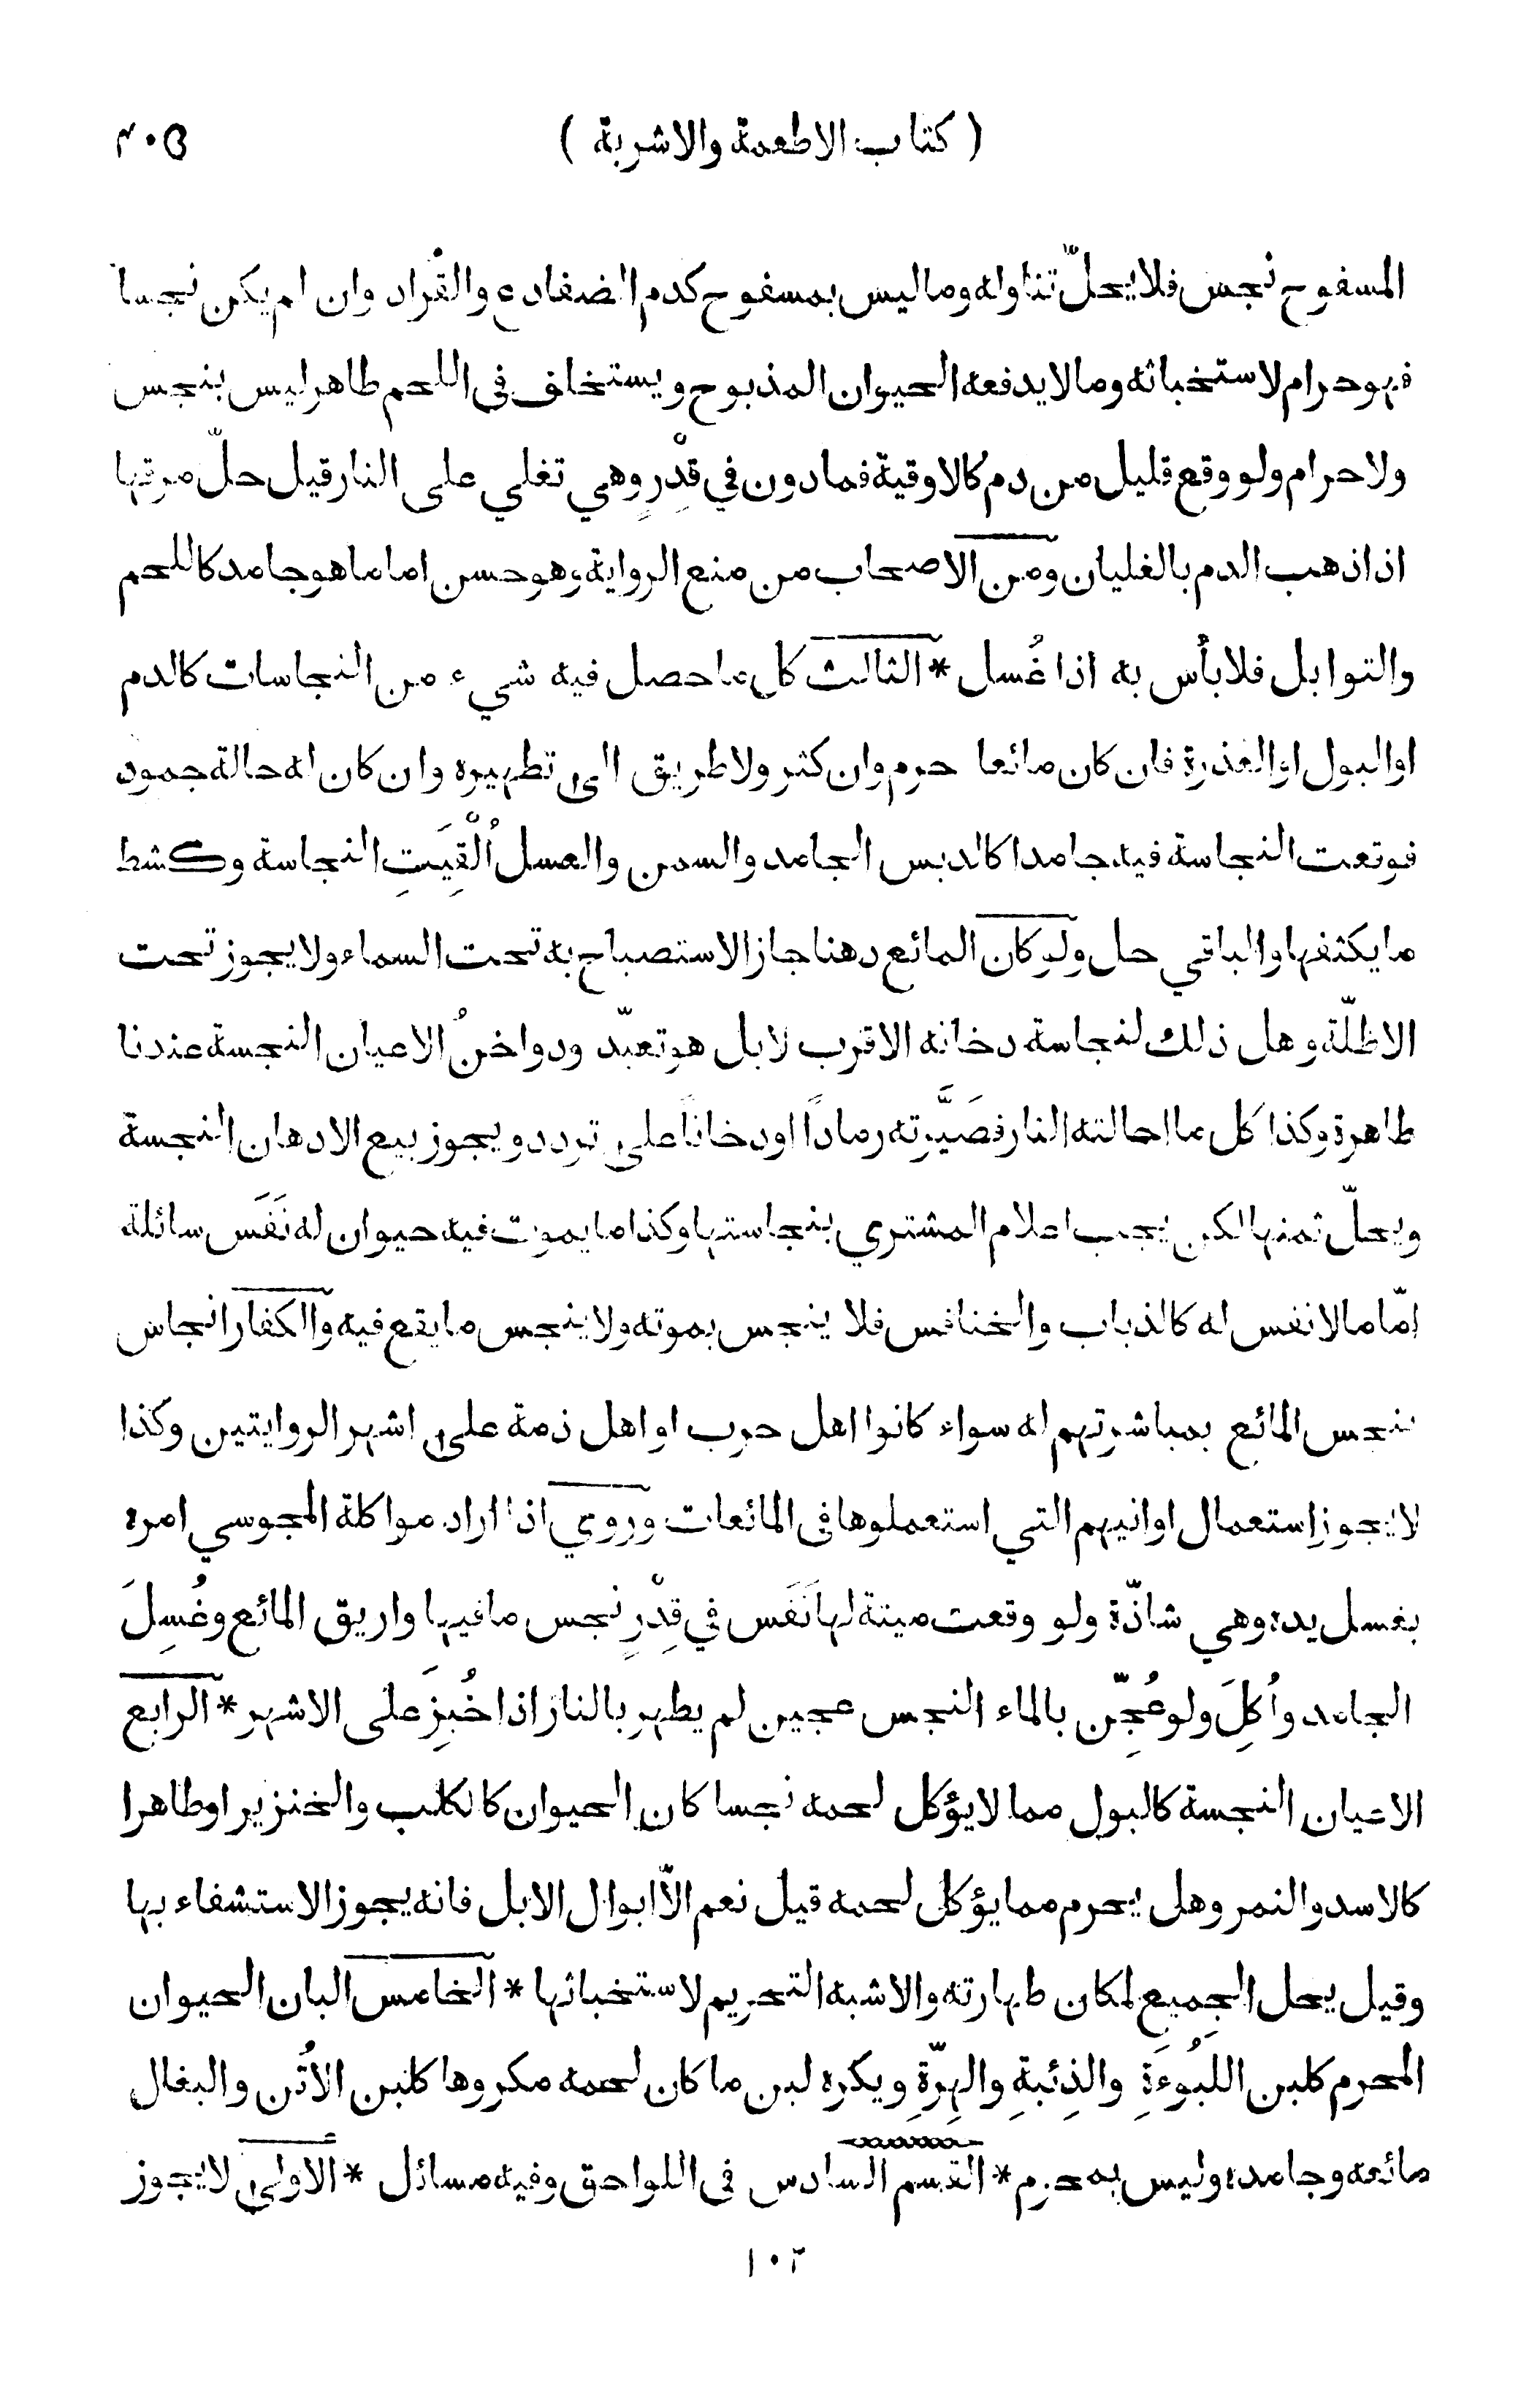 ( كتاب الاطعمة والاشربة ) ٤٠٥
المسفوح نجس فلا يحلّ تناوله وما ليس بمسفوح كدم الضفادع والقُراد وان لم يكن نجسا
فهو حرام لاستخباثه وما لا يدفعه الحيوان المذبوح ويستخلف في اللحم طاهر ليس بنجس
ولا حرام ولو وقع قليل من دم كالاوقية فما دون في قِدْرٍ وهي تغلي على النار قيل حلّ مرقها
اذا ذهب الدم بالغليان ومن الاصحاب من منع الرواية وهو حسن اما ما هو جامد كاللحم
والتوابل فلا بأس به اذا غُسل * الثالث كل ما حصل فيه شيء من النجاسات كالدم
او البول او العذرة فان كان مائعا حرم وان كثر ولا طريق الى تطهيره وان كان له حالة جمود
فوقعت النجاسة فيه جامدا كالدبس الجامد والسمن والعسل اُلْقِيَتِ النجاسة وكشط
ما يكثفها والباقي حل ولو كان المائع دهنا جاز الاستصباح به تحت السماء ولا يجوز تحت
الاظلّة وهل ذلك لنجاسة دخانه الاقرب لا بل هو تعبّد ودواخنُ الاعيان النجسة عندنا
طاهرة وكذا كل ما احالته النار فصَيَّرته رمادًا او دخانًا على تردد ويجوز بيع الادهان النجسة
ويحلّ ثمنها لكن يجب اعلام المشتري بنجاستها وكذا ما يموت فيه حيوان له نَفَس سائلة
امّا ما لا نفس له كالذباب والخنافس فلا ينجس بموته ولا ينجس ما يقع فيه والكفار انجاس
ينجس المائع بمباشرتهم له سواء كانوا اهل حرب او اهل ذمة على اشهر الروايتين وكذا
لا يجوز استعمال اوانيهم التي استعملوها في المائعات وروي اذا اراد مواكلة المجوسي امره
بغسل يده وهي شاذّة ولو وقعت ميتة لها نَفَس في قِدْرٍ نجس ما فيها واريق المائع وغُسِلَ
الجامد واُكِلَ ولو عُجِّن بالماء النجس عجين لم يطهر بالنار اذا خُبِزَ على الاشهر * الرابع
الاعيان النجسة كالبول مما لا يؤكل لحمه نجسا كان الحيوان كالكلب والخنزير او طاهرا
كالاسد والنمر وهل يحرم مما يؤكل لحمه قيل نعم الاّ ابوال الابل فانه يجوز الاستشفاء بها
وقيل يحل الجميع لمكان طهارته والاشبه التحريم لاستخباثها * الخامس البان الحيوان
المحرم كلبن اللَبُوءَةِ والذِئبةِ والهِرّةِ ويكره لبن ما كان لحمه مكروها كلبن الاُتن والبغال
مائعه وجامده وليس بمحرم * القسم السادس في اللواحق وفيه مسائل * الاولى لا يجوز
١٠٢